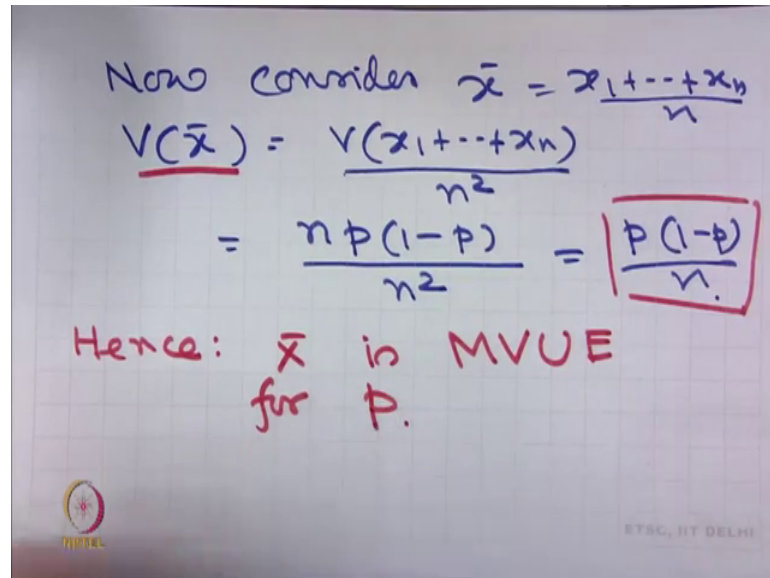 Now consider x̄ = x₁+--+xₙ/n
V(x̄) = V(x₁+--+xₙ)/n²
= np(1-p)/n² = p(1-p)/n.
Hence: x̄ is MVUE
for p.
NPTEL
ETSC, IIT DELHI